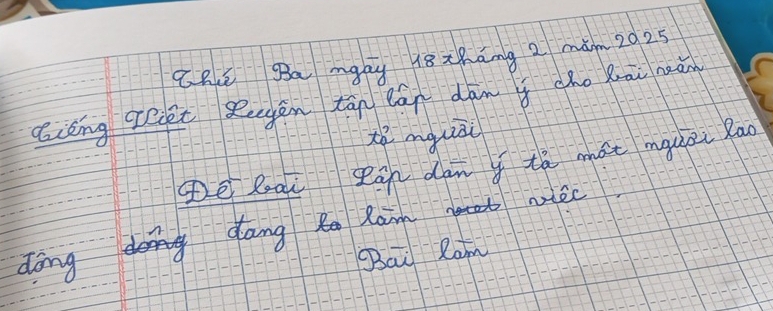 Thứ Ba ngày 18 tháng 2 năm 2025
Tiếng Việt Luyện tập lập dàn ý cho bài văn
tả người
Đề bài Lập dàn ý tả một người lao
động đang làm việc.
Bài làm